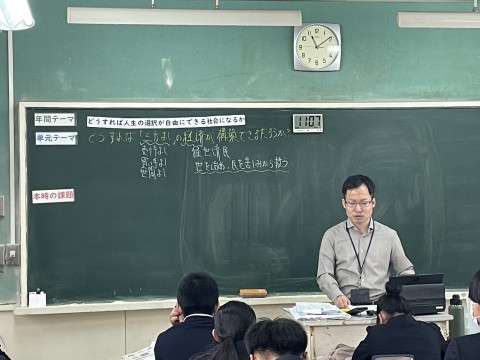 年間テーマ
どうすれば人生の選択が自由にできる社会になるか
1107
単元テーマ
どうすれば「三方よし」の経済が、構築できるだろうか?
売り手よし 経世済民
買い手よし 世を治め、民を苦しみから救う
世間よし
本時の課題